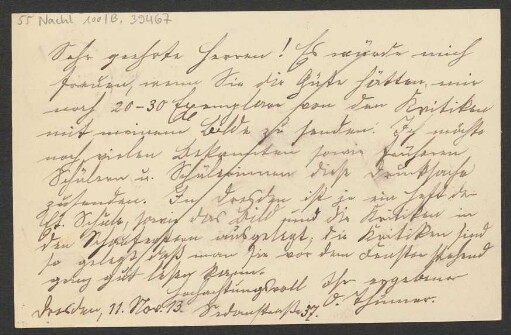 55 Nachl. 100/B, 39467
Sehr geehrte Herren! Es würde mich
freuen, wenn Sie die Güte hätten, mir
noch 20-30 Exemplare von den Kritiken
mit meinem Bilde zu senden. Ich möchte
noch vielen Bekannten sowie früheren
Schülern u. Schülerinnen diese Drucksache
zusenden. In Dresden ist ja ein Heft der
Et. Schule, sowie das Bild und die Kritiken in
den Schaufenstern ausgelegt, die Kritiken sind
so gelegt, daß man sie vor dem Fenster stehend
ganz gut lesen kann.
Hochachtungsvoll Ihr ergebener
Dresden, 11. Nov. 13. Sedanstraße 37. O. Thümer.